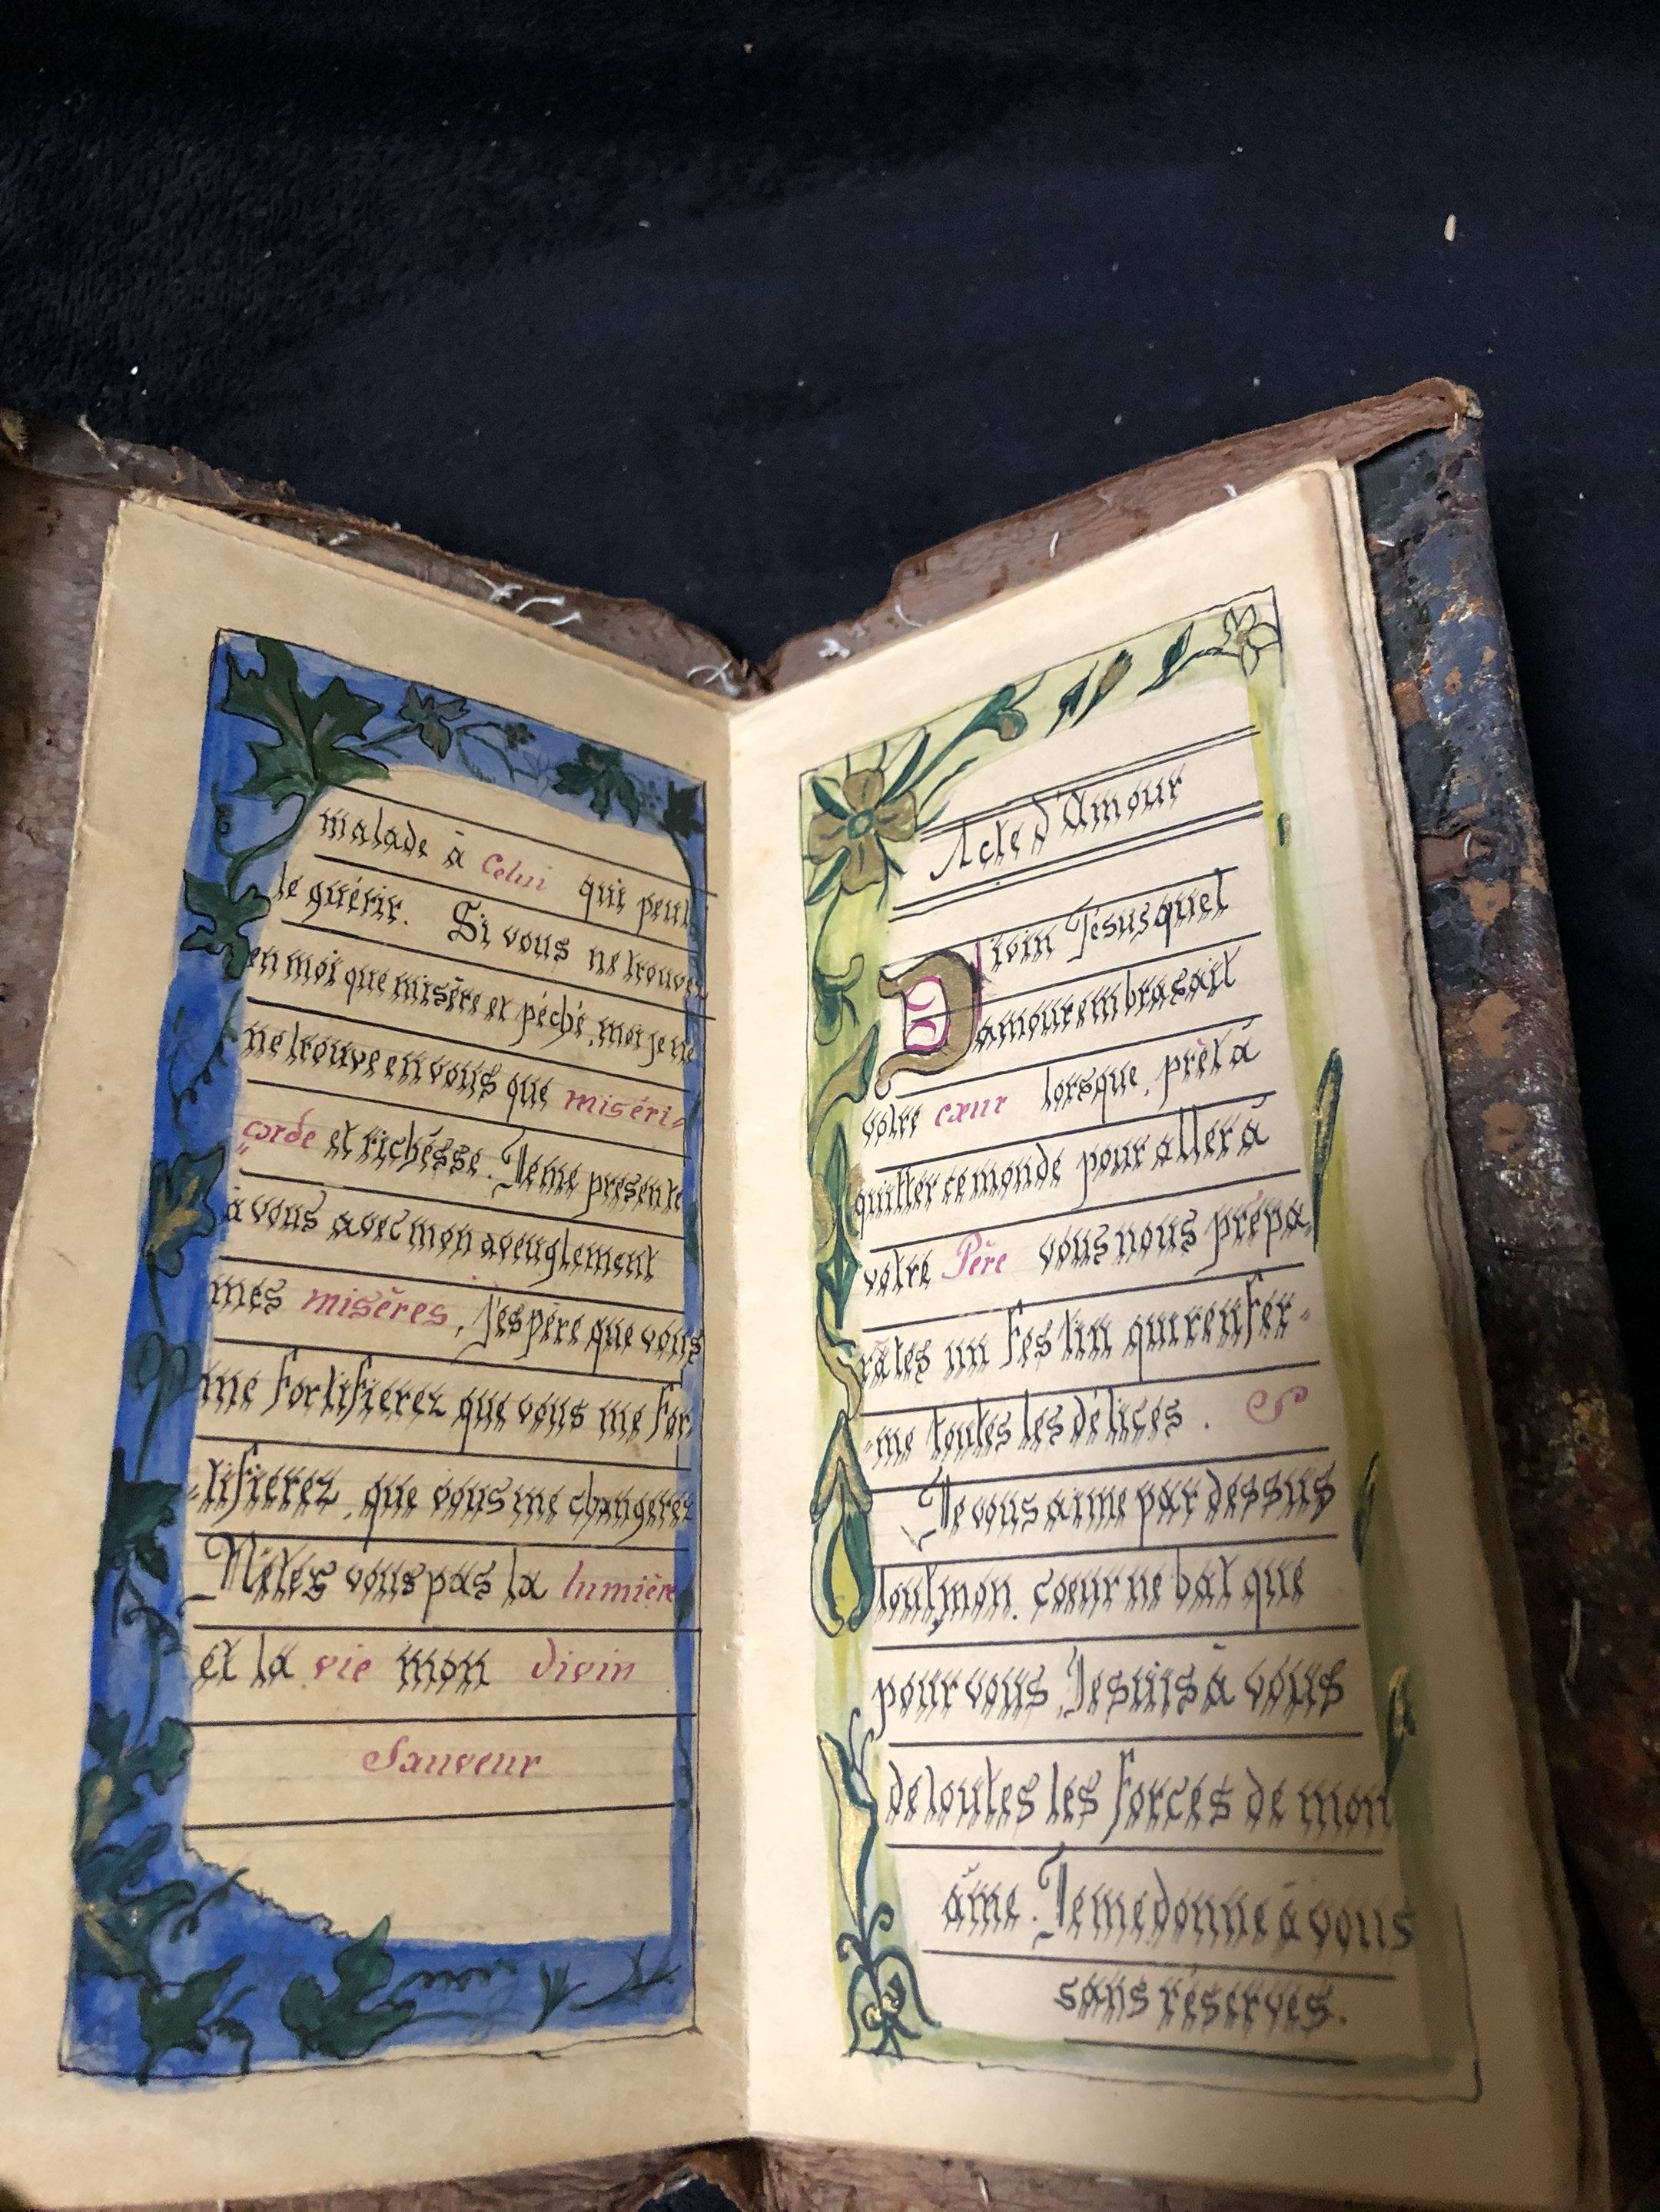 malade à Celui qui peut
le guérir. Si vous ne trouvez
en moi que misère et péché, moi je ne
ne trouve en vous que miséri-
"corde et richésse. Je me présente
à vous avec mon aveuglement
mes misères, j'espère que vous
me fortifierez que vous me for-
"tifierez, que vous me changerez
N'êtes vous pas la lumière
et la vie mon divin
Sauveur
Acte d'Amour
Divin Jésus quel
amour embrasait
votre cœur lorsque, prèt à
quitter ce monde pour aller à
votre Père vous nous prépa-
râtes un festin qui renfer-
"me toutes les délices.
Je vous aime par dessus
tout, mon cœur ne bat que
pour vous, Je suis à vous
de toutes les forces de mon
âme. Je me donne à vous
sans réserves.